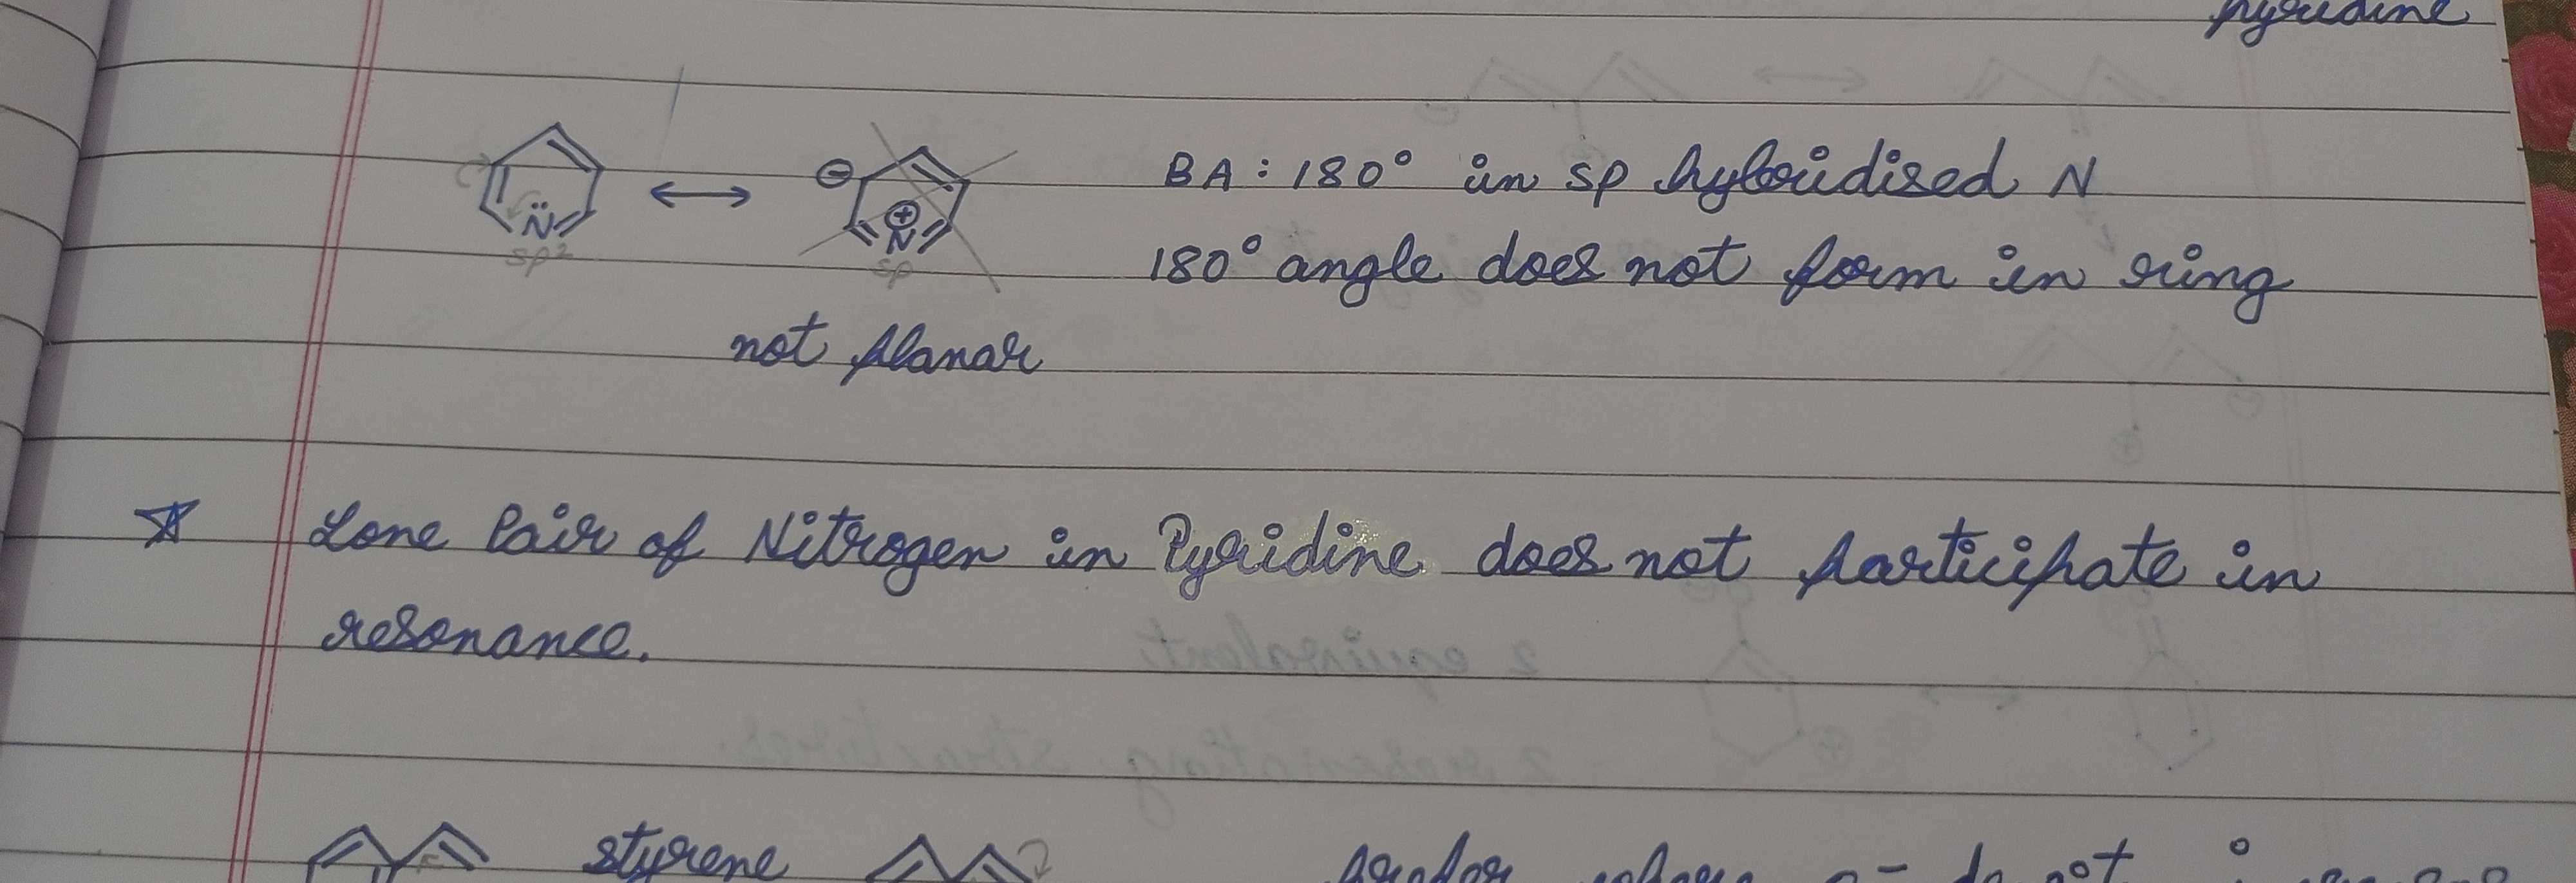 pyridine
⊖
N̈
⊕
N
sp²
sp
BA : 180° in sp hybridised N
180° angle does not form in ring
not planar
☆ Lone Pair of Nitrogen in Pyridine does not participate in
resonance.
styrene